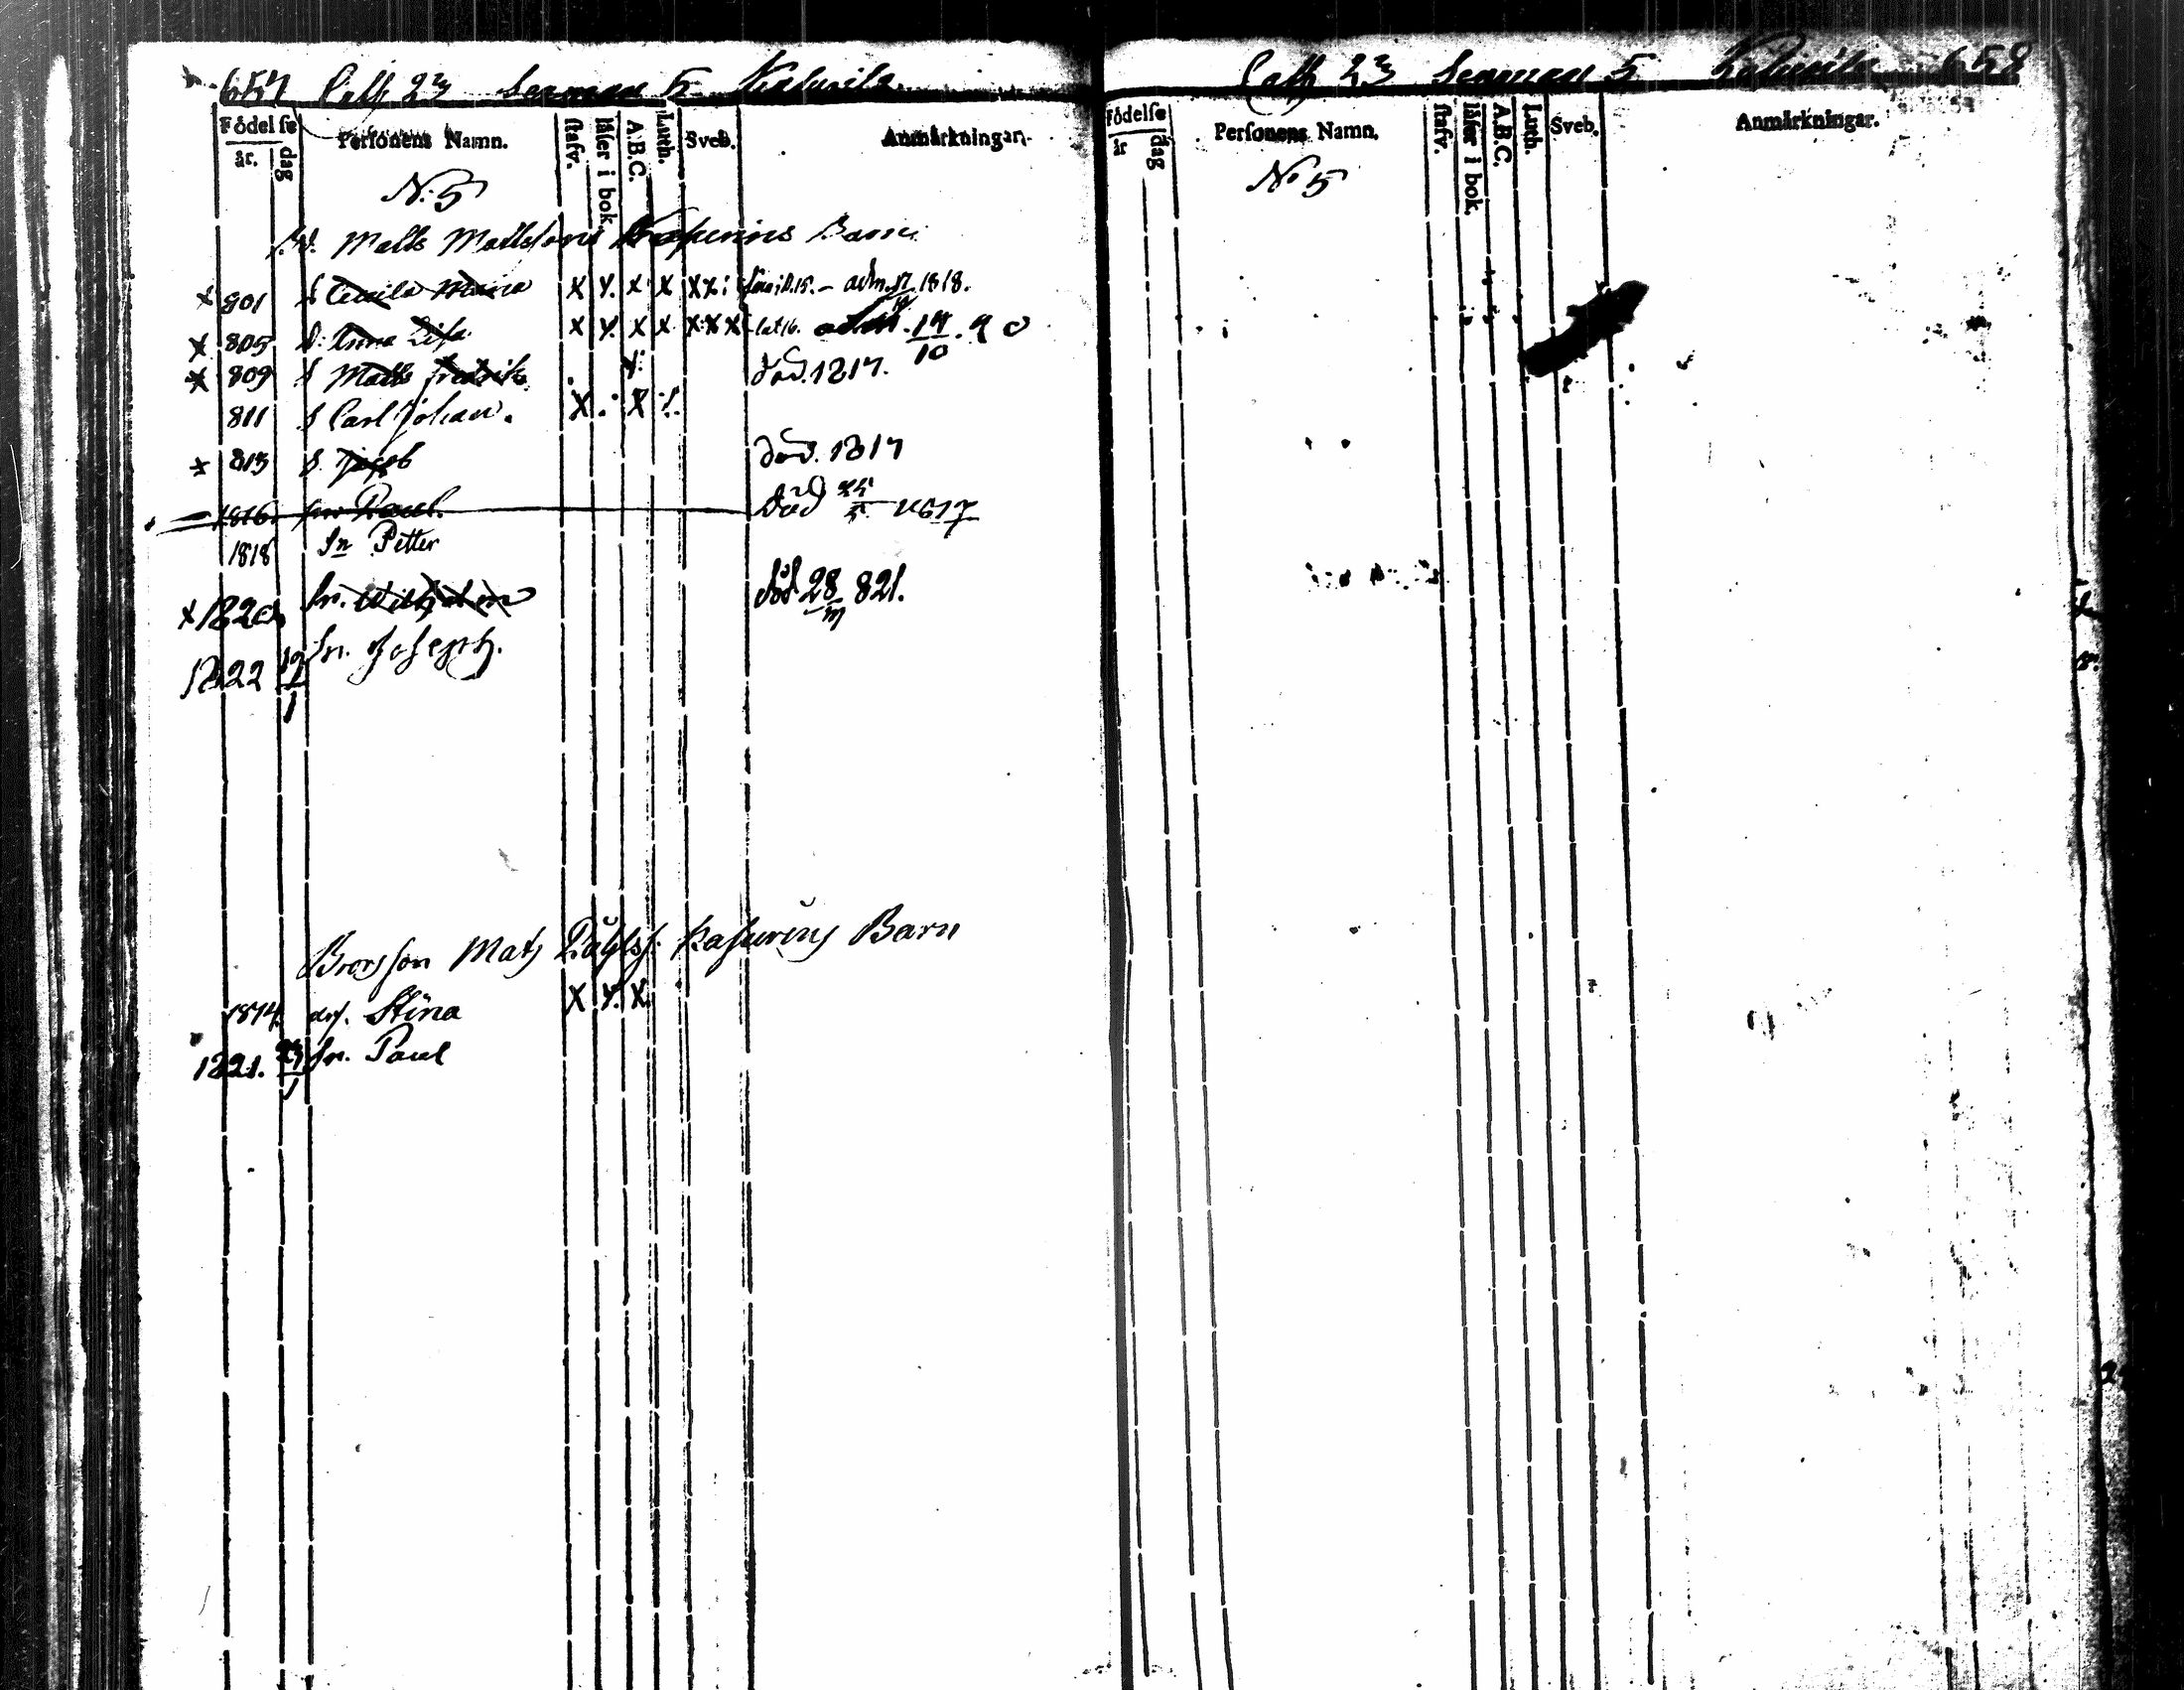 657 Cath 23 Sarman 5 Kasurila
Födelse
år. dag
Personens Namn.
stafv.
läser i bok.
A.B.C.
Luth.
Sveb.
Anmärkningar.
N:5
Matts Mattssons Kasurins Barn
x 801 Cecilia Maria x x. x x x x: adm. 1818.
x 805 D: Anna Lisa x x x x x x x
x 809 S Matts Fredrik död. 1817.
811 S Carl Johan. x x
x 813 S. Jacob död. 1817
1816. sn Paul. död 1817
1818 Sn Petter
x 1820 Sn. Wilhelm död 28/m 821.
1822 Sn. Joseph.
Brorsson Mats Påhlss: Kasurins Barn
1814. dr. Stina x x. x
1821. Sn. Paul
Cath 23 Sarman 5 Kasurila 658
Födelse
år dag
Personens Namn.
stafv.
läser i bok.
A.B.C.
Luth.
Sveb.
Anmärkningar.
No 5